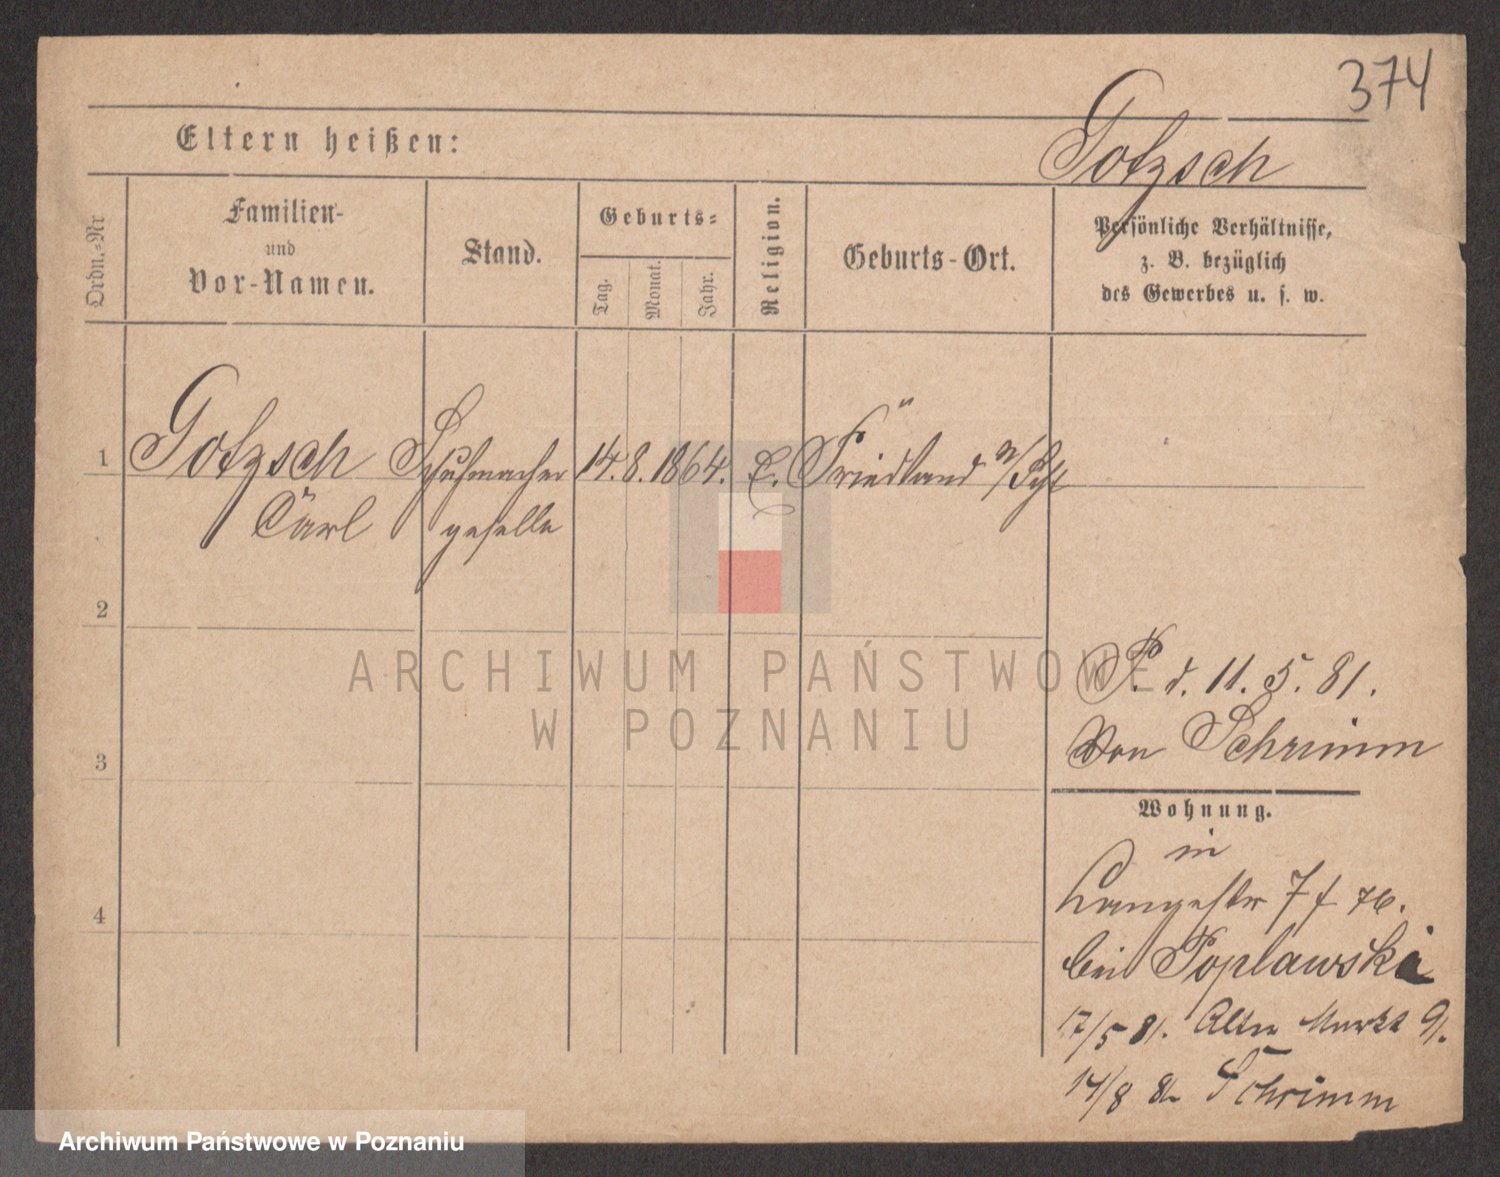 374
Gotzsch
Eltern heißen:
Ordn.-Nr
Familien-
und
Vor-Namen.
Stand.
Geburts-
Tag.
Monat.
Jahr.
Religion.
Geburts-Ort.
Persönliche Verhältnisse,
z. B. bezüglich
des Gewerbes u. s. w.
1 Gotzsch Schuhmacher 14. 8. 1864. E. Friedland
Carl geselle
2
3
4
P. d. 11. 5. 81.
von Schrimm
Wohnung.
in
Langestr 7
bei Poplawski
17/5 81. Alter Markt 91.
14/8 81 Schrimm
ARCHIWUM PAŃSTWOWE
W POZNANIU
Archiwum Państwowe w Poznaniu